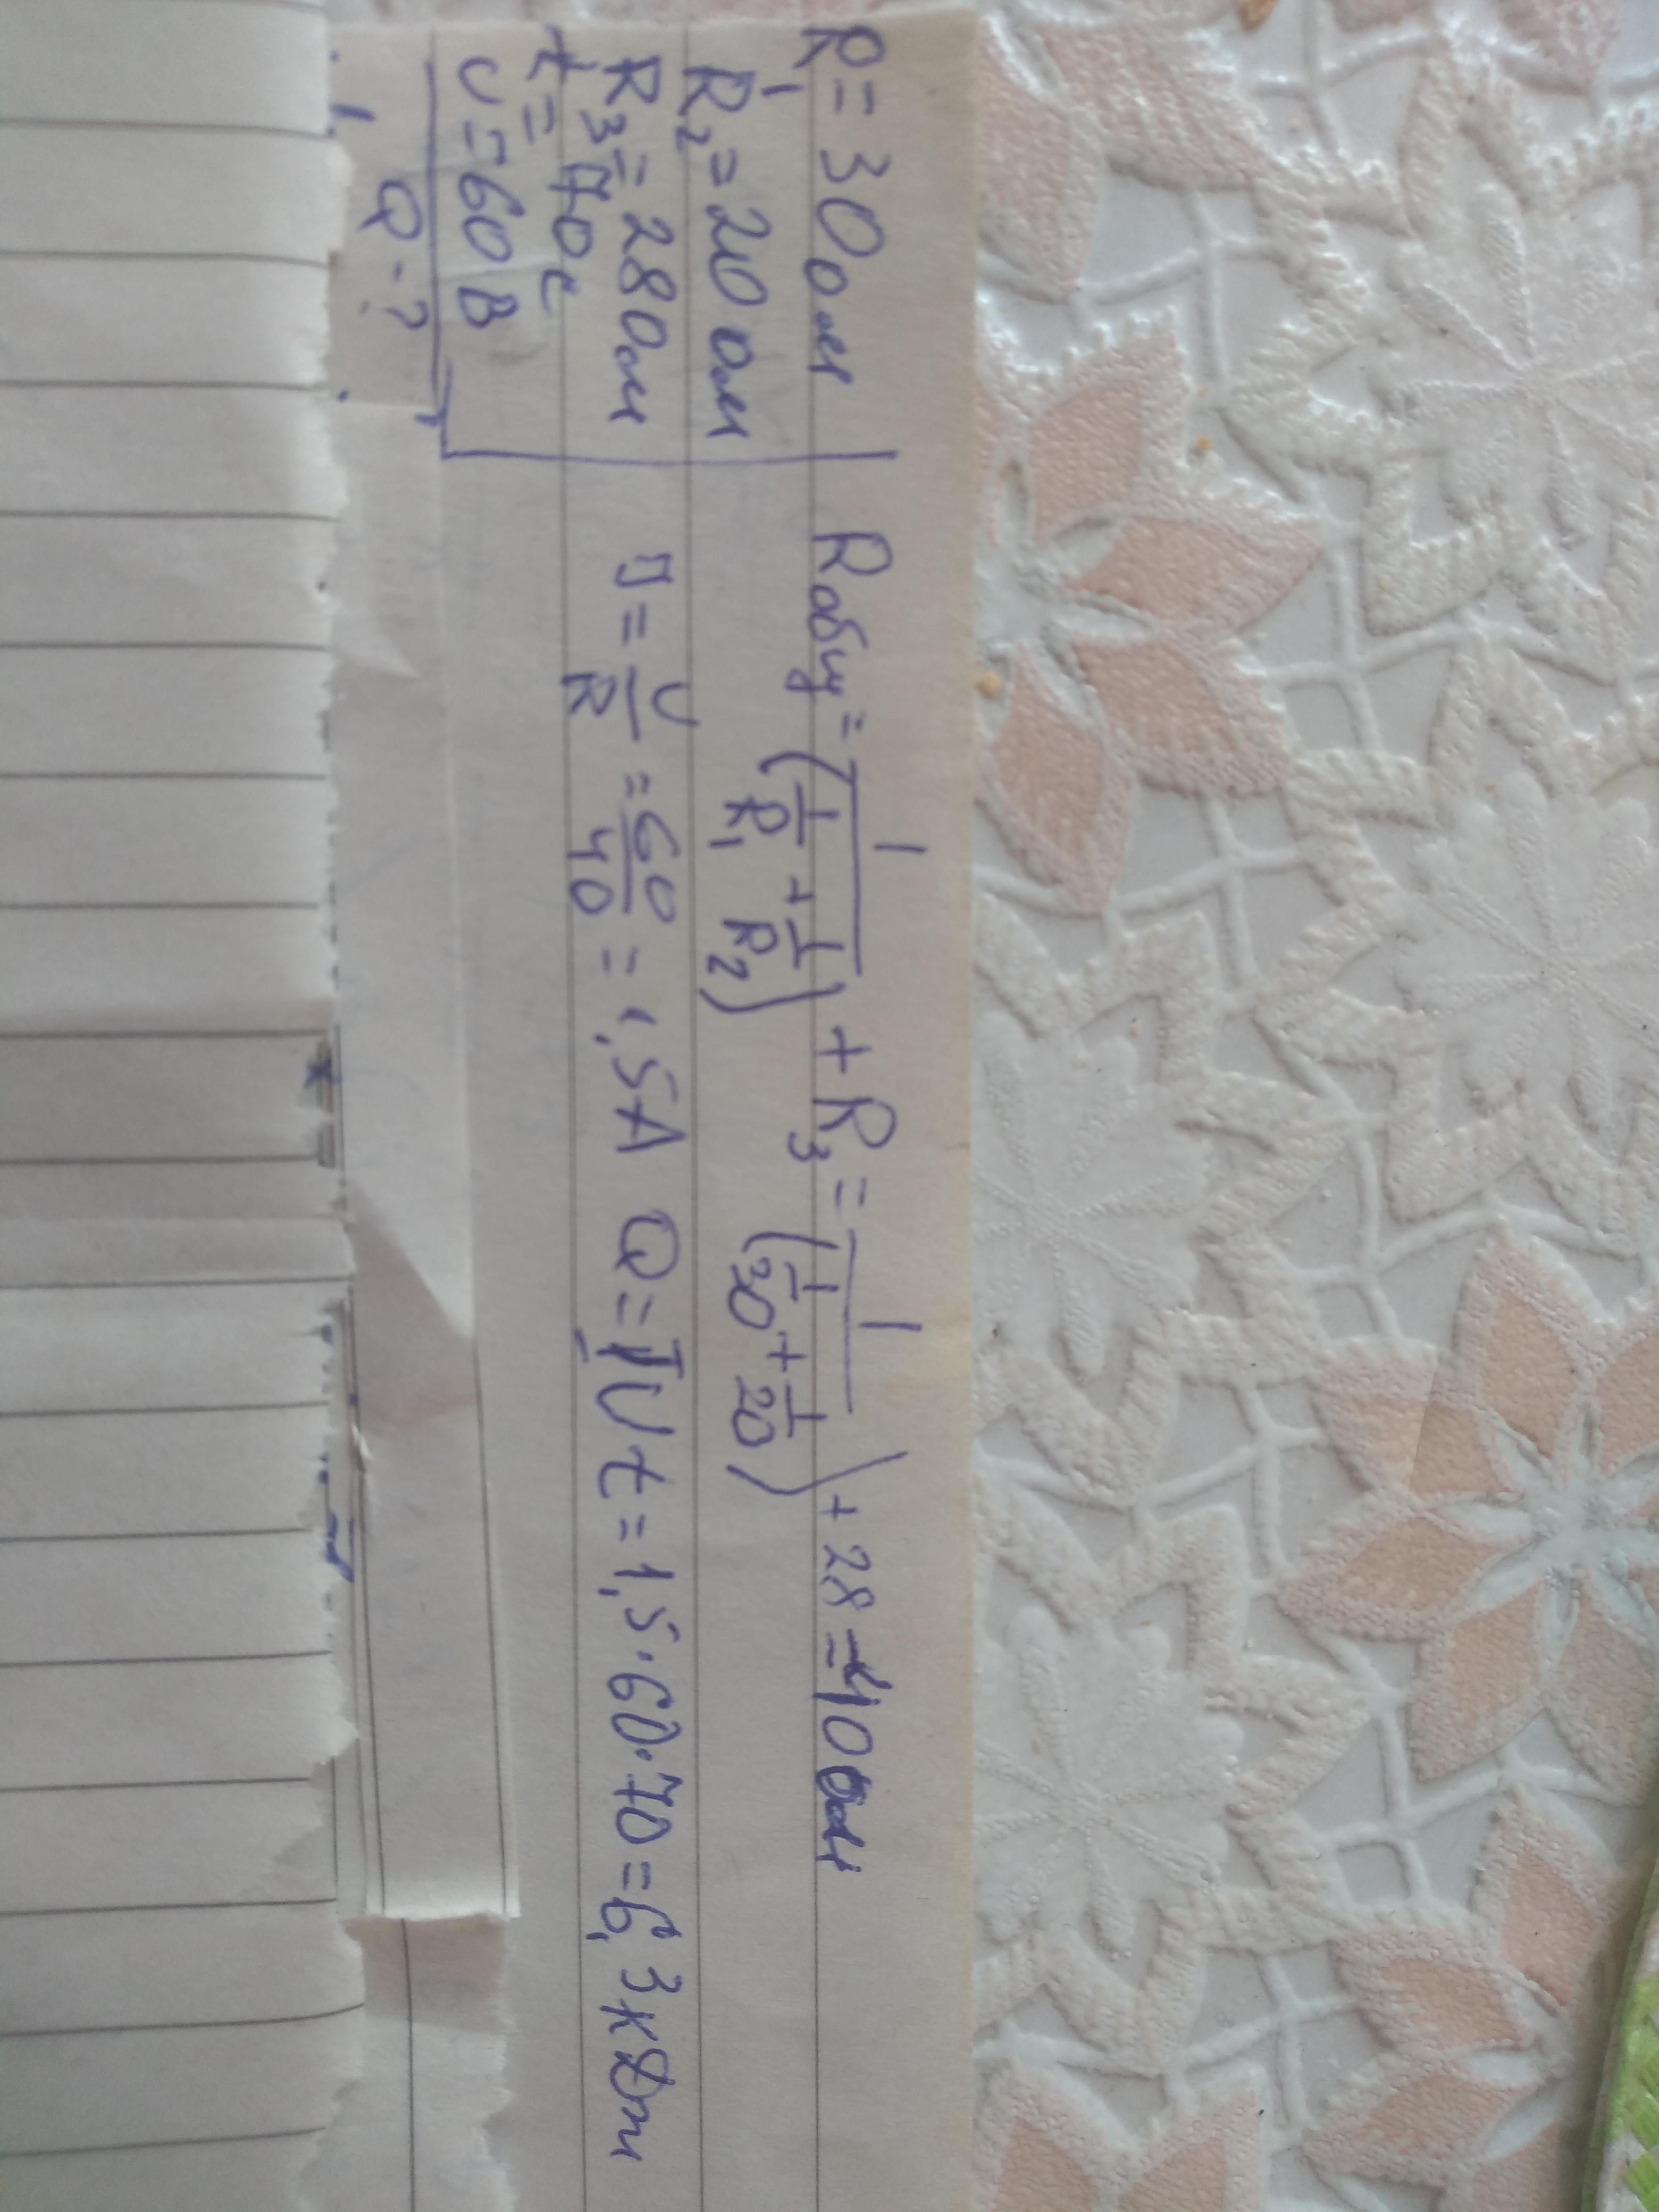 R1 = 30 ом
R2 = 20 ом
R3 = 28 ом
t = 70 с
U = 60 В
Q - ?
Rобщ = 1/(1/R1 + 1/R2) + R3 = 1/(1/30 + 1/20) + 28 = 40 ом
J = U/R = 60/40 = 1,5А Q = IUt = 1,5·60·70 = 6,3 кДж